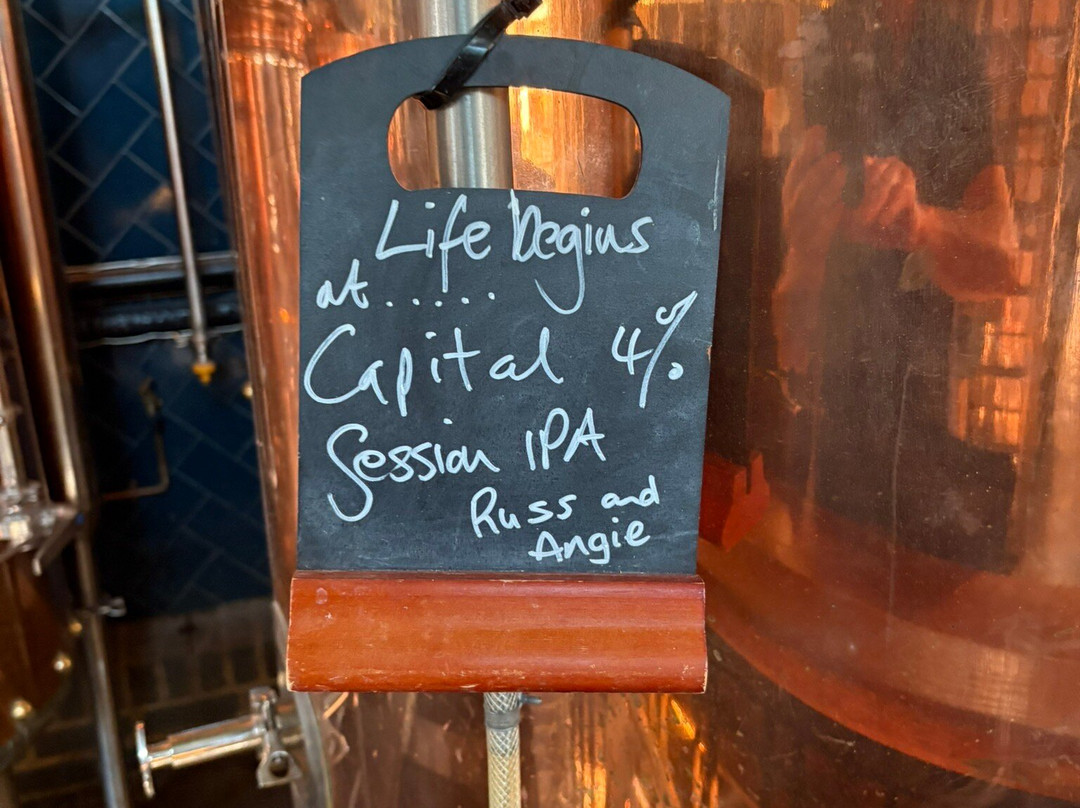 Life begins
at......
Capital 4%
Session IPA
Russ and
Angie